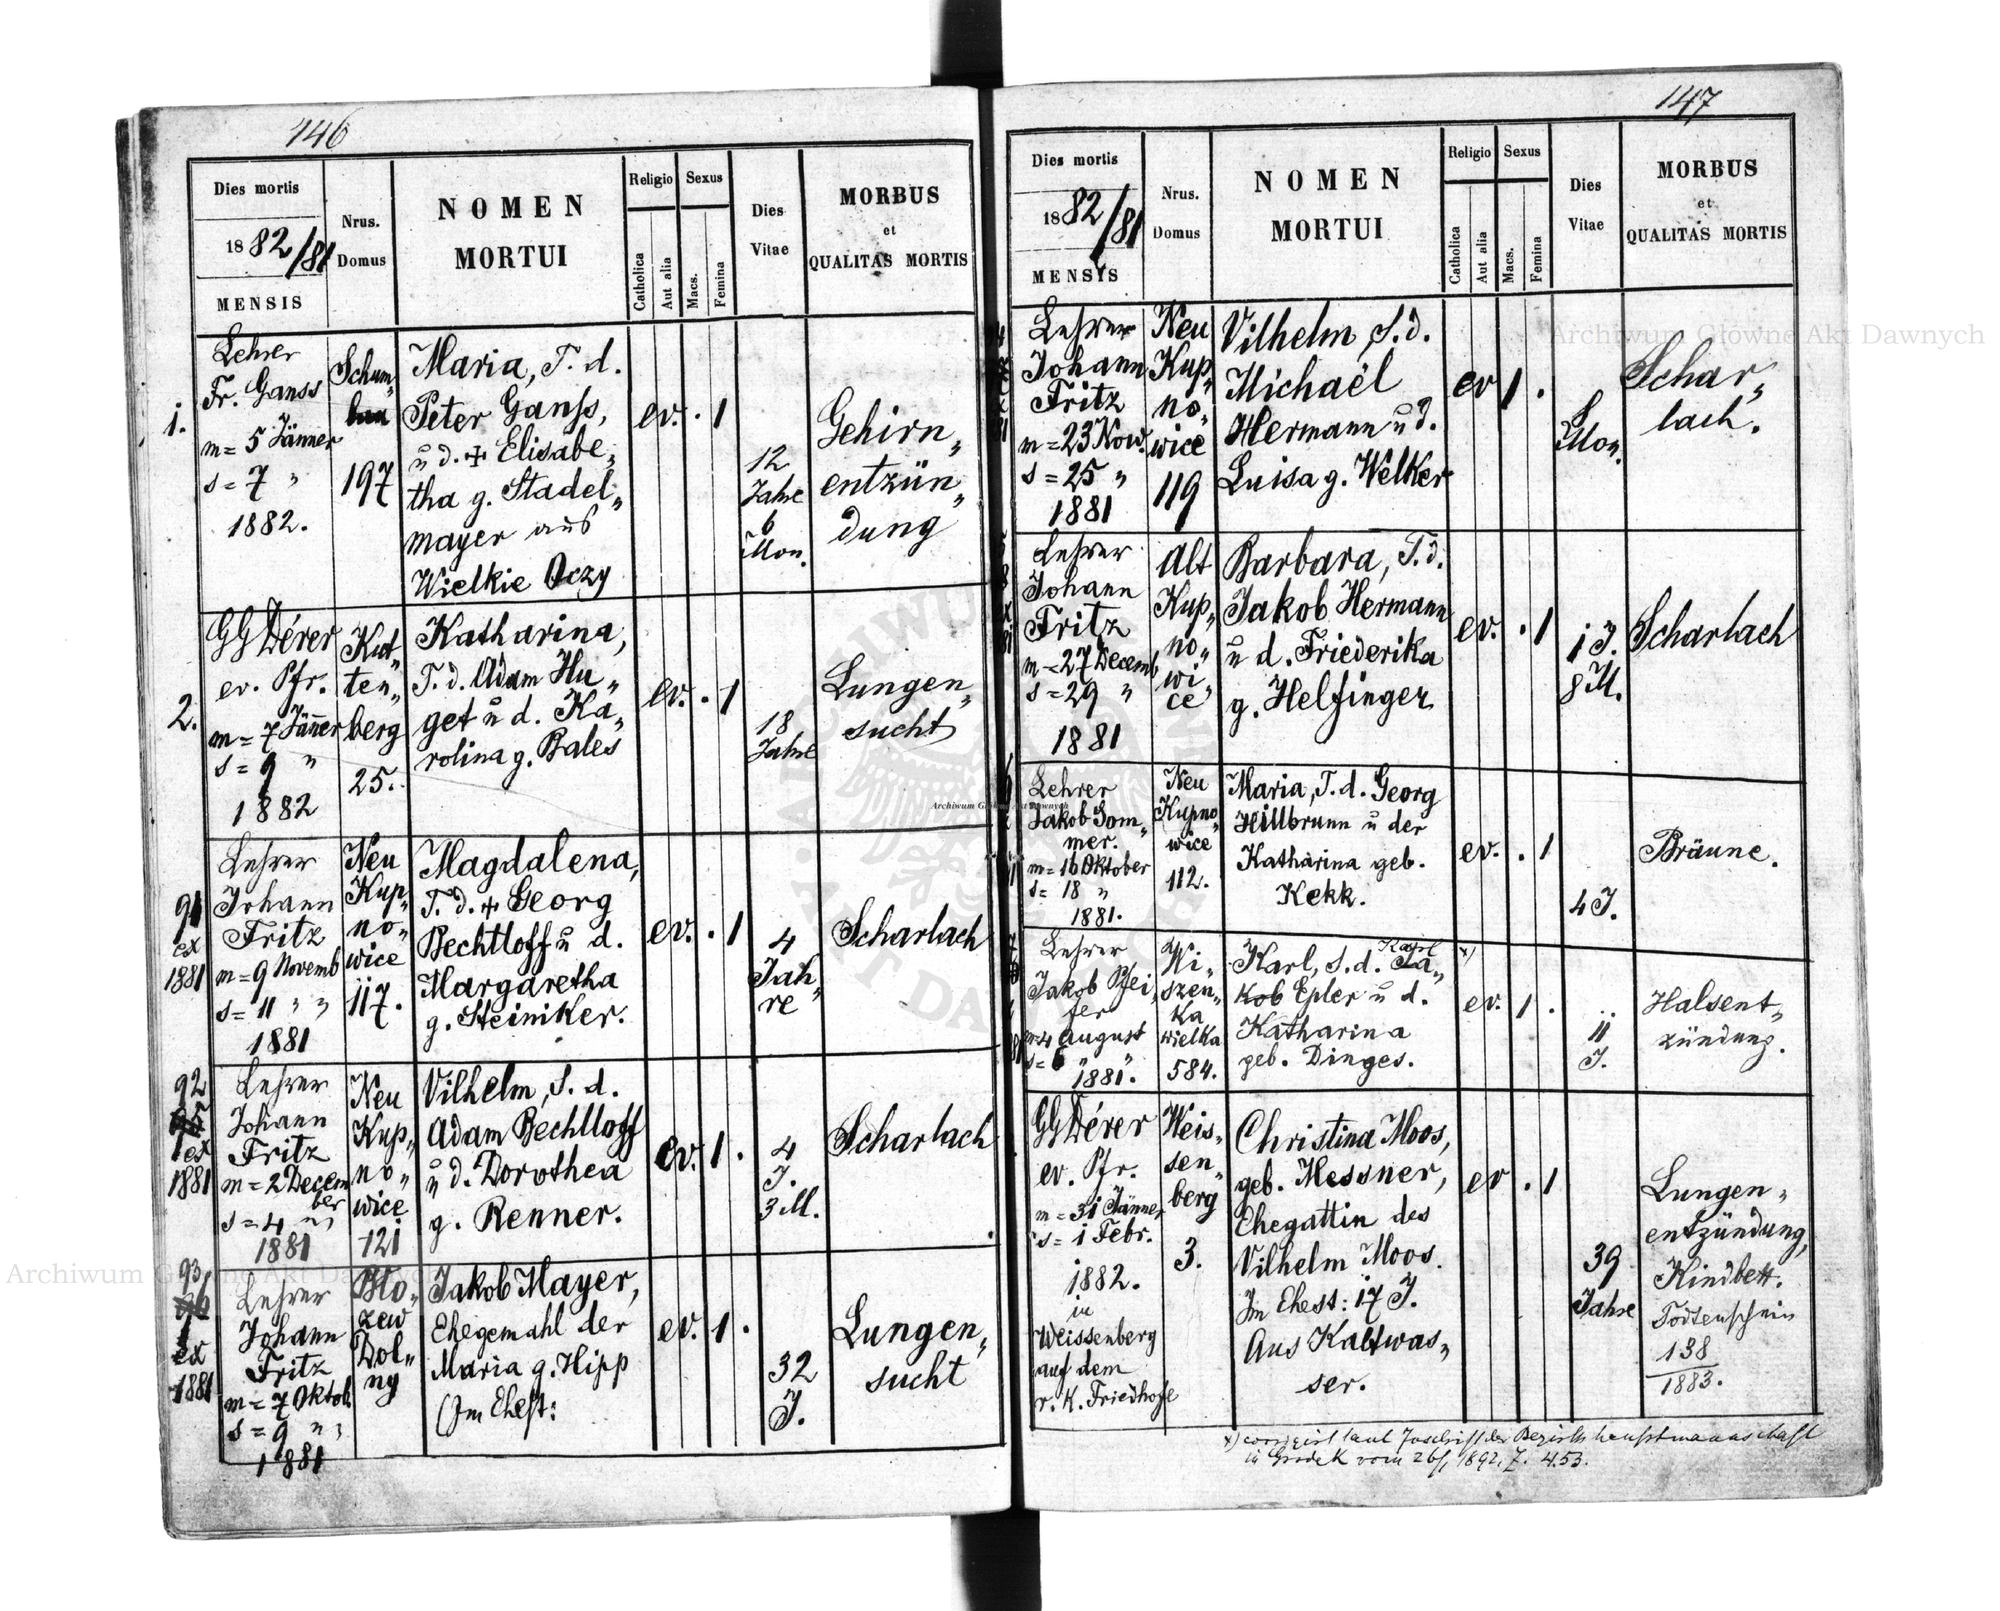 146
Dies mortis
1882/81
MENSIS
Nrus.
Domus
NOMEN
MORTUI
Religio
Catholica
Aut alia
Sexus
Macs.
Femina
Dies
Vitae
MORBUS
et
QUALITAS MORTIS
1.
Lehrer
Fr. Ganss
m = 5 Jänner
s = 7 "
1882.
Schum-
lau
197
Maria, T. d.
Peter Ganss,
u d. + Elisabe-
tha g. Stadel-
mayer aus
Wielkie Oczy
ev. . 1
12
Jahre
6
Mon.
Gehirn-
entzün-
dung
2.
GGDérer
ev. Pfr.
m = 7 Jänner
s = 9 "
1882
Kut-
ten-
berg
25.
Katharina,
T. d. Adam Hu-
get u d. Ka-
rolina g. Bales
ev. . 1
18
Jahre
Lungen-
sucht
91
ex
1881
Lehrer
Johann
Fritz
m = 9 Novemb
s = 11 " "
1881
Neu
Kup-
no-
wice
117.
Magdalena,
T. d. + Georg
Bechtloff u d.
Margaretha
g. Steiniker.
ev. . 1
4
Jah-
re
Scharlach
92
ex
1881
Lehrer
Johann
Fritz
m = 2 Decem
ber
s = 4 " "
1881
Neu
Kup-
no-
wice
121
Vilhelm, S. d.
Adam Bechtloff
u d. Dorothea
g. Renner.
ev. 1 .
4
J.
3 M.
Scharlach
93
ex
1881
Lehrer
Johann
Fritz
m = 7 Oktob
s = 9 " "
1881
Blo-
zew
Dol-
ny
Jakob Mayer,
Ehegemahl der
Maria g. Hipp
(Im Ehest:
ev. 1 .
32
J.
Lungen-
sucht
147
Dies mortis
1882/81
MENSIS
Nrus.
Domus
NOMEN
MORTUI
Religio
Catholica
Aut alia
Sexus
Macs.
Femina
Dies
Vitae
MORBUS
et
QUALITAS MORTIS
Lehrer
Johann
Fritz
m = 23 Nov.
s = 25 "
1881
Neu
Kup-
no-
wice
119
Vilhelm S. d.
Michaël
Hermann u d.
Luisa g. Welker
ev 1 .
Mon.
Schar-
lach.
Lehrer
Johann
Fritz
m = 27 Decemb
s = 29 "
1881
Alt
Kup-
no-
wi-
ce
Barbara, T. d.
Jakob Hermann
u d. Friederika
g. Helfinger
ev. . 1
1 J.
8 M.
Scharlach
Lehrer
Jakob Som-
mer.
m = 16 Oktober
s = 18 "
1881.
Neu
Kupno-
wice
112.
Maria, T. d. Georg
Hillbrunn u der
Katharina geb.
Kekk.
ev. . 1
4 J.
Bräune.
Lehrer
Jakob Pfei-
fer
m = 4 August
s = 6 " "
1881.
Wi-
szen-
ka
wielka
584.
Karl
Karl, S. d. Ja- x)
kob Epler u d.
Katharina
geb. Dinges.
ev. 1 .
11
J.
Halsent-
zündung.
GGDérer
ev. Pfr.
m = 31 Jänner
s = 1 Febr.
1882.
in
Weissenberg
auf dem
r. k. Friedhofe
Weis-
sen-
berg
3.
Christina Moos,
geb. Messner,
Ehegattin des
Vilhelm Moos.
Im Ehest: 17 J.
Aus Kaltwas-
ser.
ev . 1
39
Jahre
Lungen-
entzündung,
Kindbett.
Todtenschein
138
1883.
x) corrigirt laut Zuschrift der Bezirkshauptmannschaft
in Grodek vom 26/1 1892, Z. 453.
Archiwum Główne Akt Dawnych
Archiwum Główne Akt Dawnych
Archiwum Główne Akt Dawnych